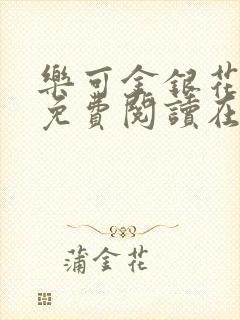 樂可金銀花
免費閱讀在
蒲金花